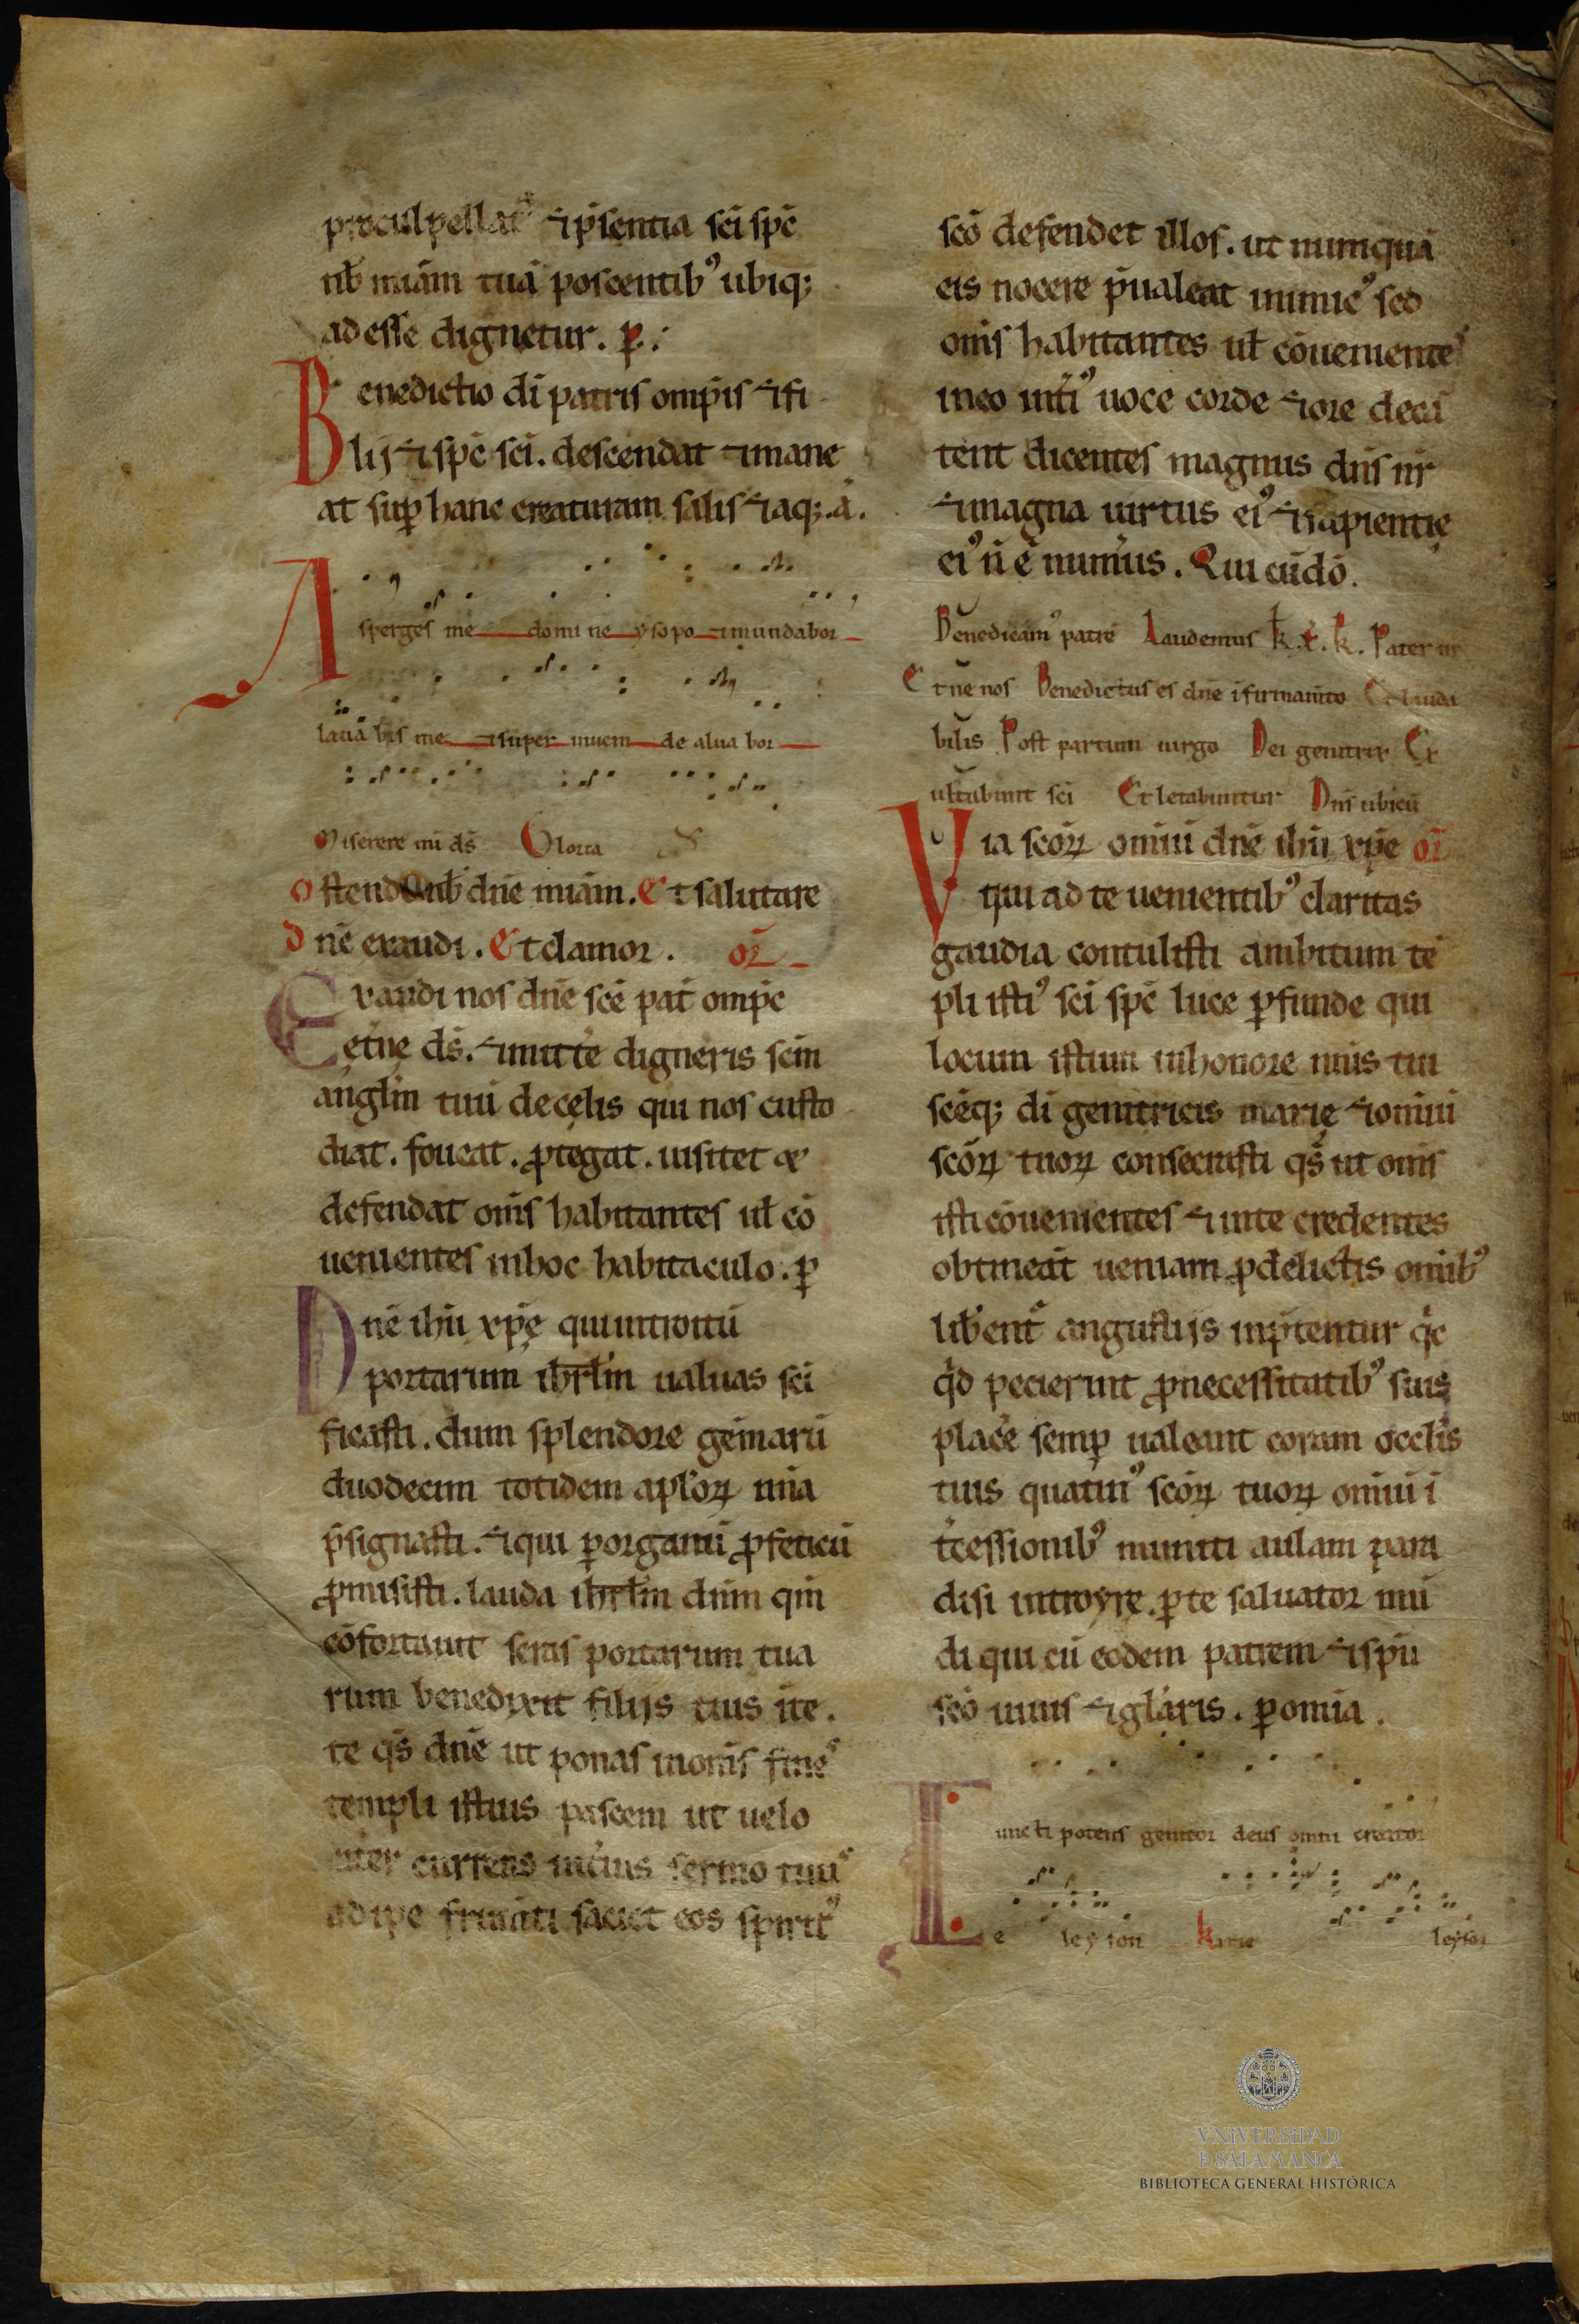 proculpellat᷑ ⁊ p̄sentia sc̄i sp̄c
nb̄ miām tuā poscentib⁹ ubiq;
adesse dignetur. ꝑ.
Benedictio dī patris omp̄is ⁊ fi
lij ⁊ sp̄c sc̄i. descendat ⁊ mane
at suꝑ hanc creaturam salis ⁊ aq;. ā.
Asperges me domine ysopo ⁊ mundabor
lauabis me ⁊ super niuem dealuabor
Miserere mī ds̄ Gloria
Ostende nb̄ dn̄e miām. Et salutare
Dn̄e exaudi. Et clamor. oꝝ̄
Exaudi nos dn̄e sc̄e pat̄ omp̄c
et̄ne ds̄. ⁊ mitt̄e digneris sc̄m
anglm̄ tuū de cęlis qui nos custo
diat. foueat. ꝓtegat. uisitet &
defendat om̄s habitantes ul̄ cō
uenientes in hoc habitaculo. ꝑ
Dn̄e ihū xp̄e qui introitū
portarum ihrlm̄ ualuas sc̄i
ficasti. dum splendore gemarū
duodecim totidem aplōꝝ nīa
p̄signasti. ⁊ qui ꝑ organū ꝓfeticū
ꝓmisisti. lauda ihrlm̄ dnm̄ qm̄
cōfortauit seras portarum tua
rum benedixit filijs tuis īte.
te qs̄ dn̄e ut ponas in om̄s fines
templi istius pascem ut uelo
citer currens int̄ius sermo tuus
adipe frum̄ti saciet eos spirit⁹
sc̄o defendet illos. ut numquā
eis nocere p̄ualeat inimic⁹ sed
om̄s habitantes ul̄ cōuenientes
in eo int̄i⁹ uoce corde ⁊ ore decā
tent dicentes magnus dn̄s nr̄
⁊ magna uirtus ei⁹ ⁊ sapientię
ei⁹ n̄ ē num̄us. Qui cūdō.
Benedicam⁹ patrē Laudemus k. x̄. k. Pater nr̄
Et ne nos Benedictus es dn̄e ī firmam̄to Et lauda
bilis Post partum uirgo Dei genitrix Ex
ultabunt sc̄i Et letabuntur Dn̄s ubicū
Via sc̄oꝝ omiū dn̄e ihū xp̄e oꝝ̄
qui ad te uenientib⁹ claritas
gaudia contulisti ambitum tē
pli isti⁹ sc̄i sp̄c luce ꝑfunde qui
locum istum in honore nīis tui
sc̄eq; dī genitricis marię ⁊ omiū
sc̄oꝝ tuoꝝ consecrasti qs̄ ut om̄s
isti cōuenientes ⁊ in te credentes
obtineāt ueniam ꝓ delictis omīb⁹
lib̄ent᷑ angustijs inp̄tentur qͥc
qͥd pecierint ꝓ necessitatib⁹ suis
plac̄e semꝑ ualeant coram occlis
tuis quatin⁹ sc̄oꝝ tuoꝝ omiū ī
t̄cessionib⁹ muniti aulam para
disi introyre. ꝑ te saluator mū
di qui cū eodem patrem ⁊ spū
sc̄o uiuis ⁊ glāris. ꝑ omīa.
uncti potens genitor deus omni creator
e leyson Kirie leyson
VNiVERSiDAD
D SALAMANCA
BIBLIOTECA GENERAL HISTÓRICA